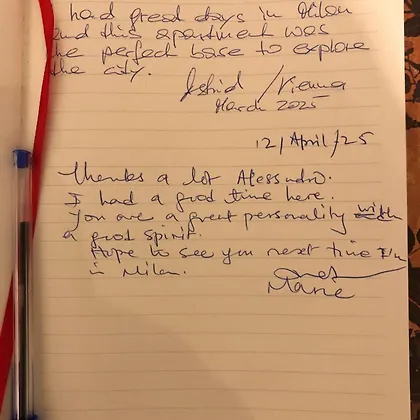 had great days in Milan
and this apartment was
the perfect base to explore
the city.
Astrid / Vienna
March 2025
12/April/25
Thanks a lot Alessandro.
I had a good time here.
You are a great personality with
a good spirit.
Hope to see you next time I'm
in Milan.
Marie